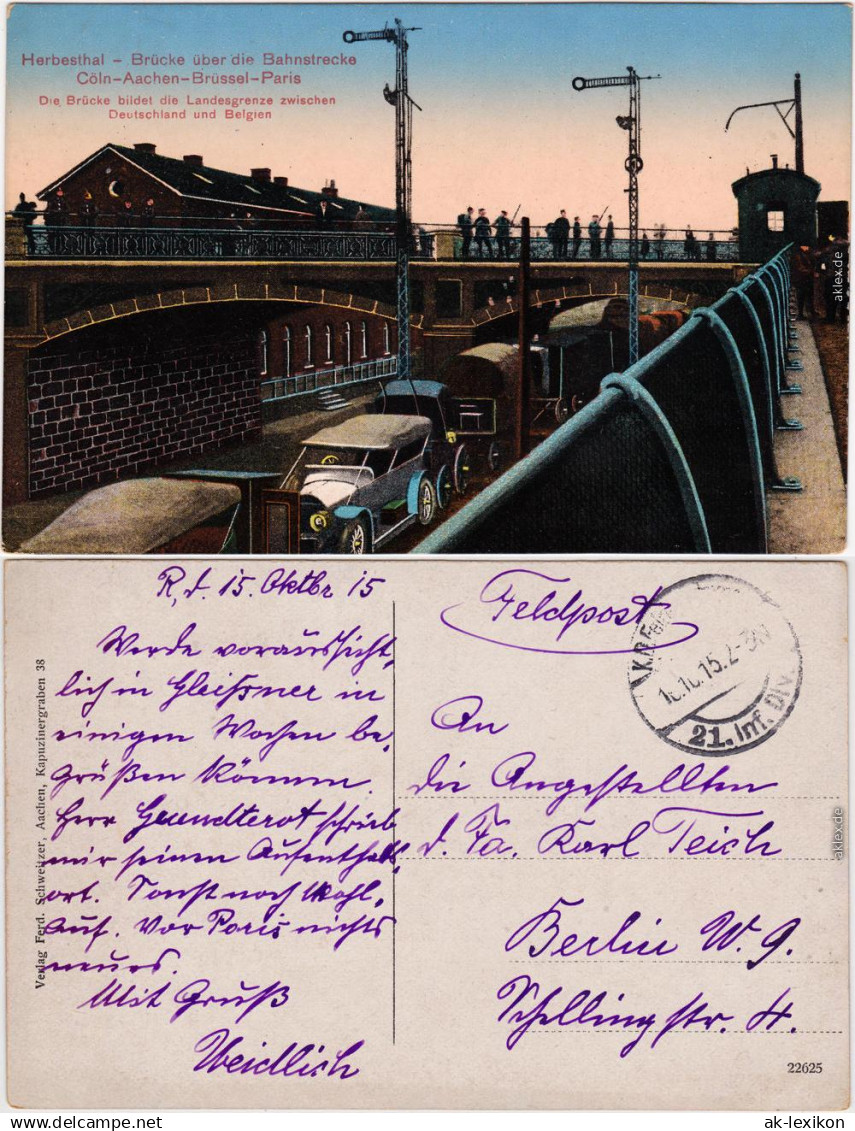 Herbesthal - Brücke über die Bahnstrecke
Cöln-Aachen-Brüssel-Paris
Die Brücke bildet die Landesgrenze zwischen
Deutschland und Belgien
aklex.de
R, d. 15. Oktbr 15
Werde voraussicht,
lich in Gleißner in
einigen Wochen be,
grüßen können.
Herr schrieb
mir seinen Aufenthalts,
ort. Sonst noch Wohl,
auf. Vor Paris nichts
neues.
Mit Gruß
Weidlich
Verlag Ferd. Schweitzer, Aachen, Kapuzinergraben 38
Feldpost
15.2-3N
21. Inf. Div.
An
die Angestellten
d. Fa. Karl Teich
Berlin W. 9.
Schellingstr. 4.
22625
aklex.de
www.delcampe.net
ak-lexikon